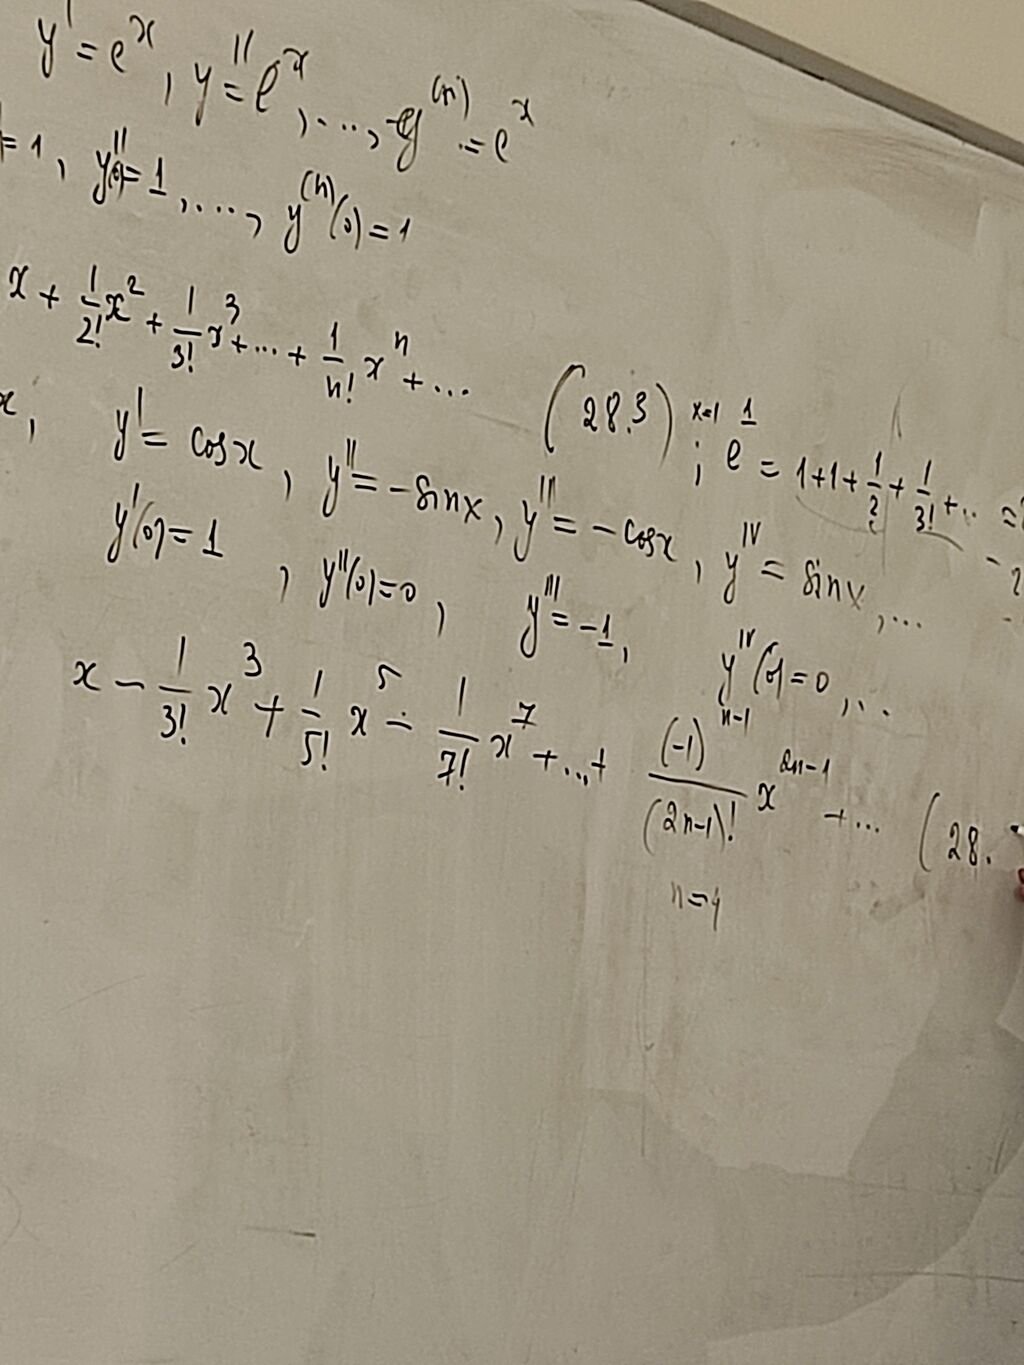 y' = e^x, y'' = e^x, ..., y^(n) = e^x
= 1, y''(0) = 1, ..., y^(n)(0) = 1
x + 1/2! x^2 + 1/3! x^3 + ... + 1/n! x^n + ... (28.3) x=1; e^1 = 1+1+1/2+1/3!+.. =
x, y' = cosx, y'' = -sinx, y''' = -cosx, y^IV = sinx, ...
y'(0) = 1, y''(0) = 0, y''' = -1, y^IV(0) = 0, ..
x - 1/3! x^3 + 1/5! x^5 - 1/7! x^7 + ... + (-1)^(n-1)/(2n-1)! x^(2n-1) + ... (28.